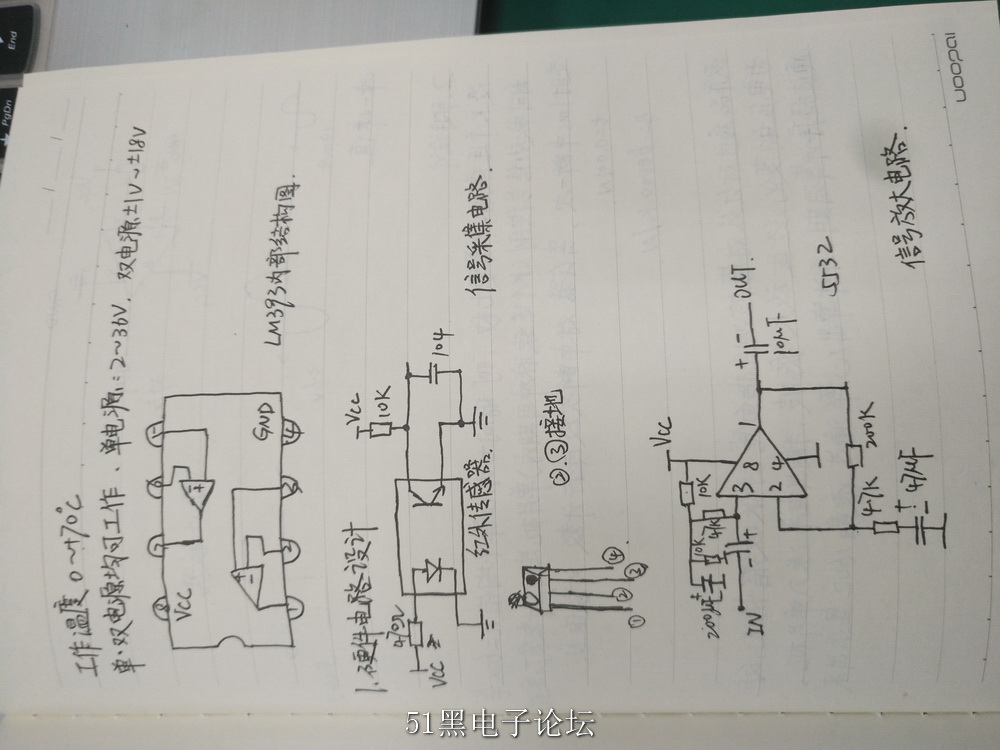 工作温度 0~+70℃
单、双电源均可工作、单电源:2~36V,双电源±1V~±18V
8
7
6
5
VCC
GND
1
2
3
4
LM393内部结构图.
1.硬件电路设计
VCC
470Ω
VCC
10K
104
红外传感器.
信号采集电路.
①
②
③
④
②.③接地
VCC
10K
10K
47K
IN
3
8
1
2
4
+
-
OUT
10μF
200K
4.7K
+
47μF
5532
信号放大电路.
uoopai
End
PgDn
51黑电子论坛